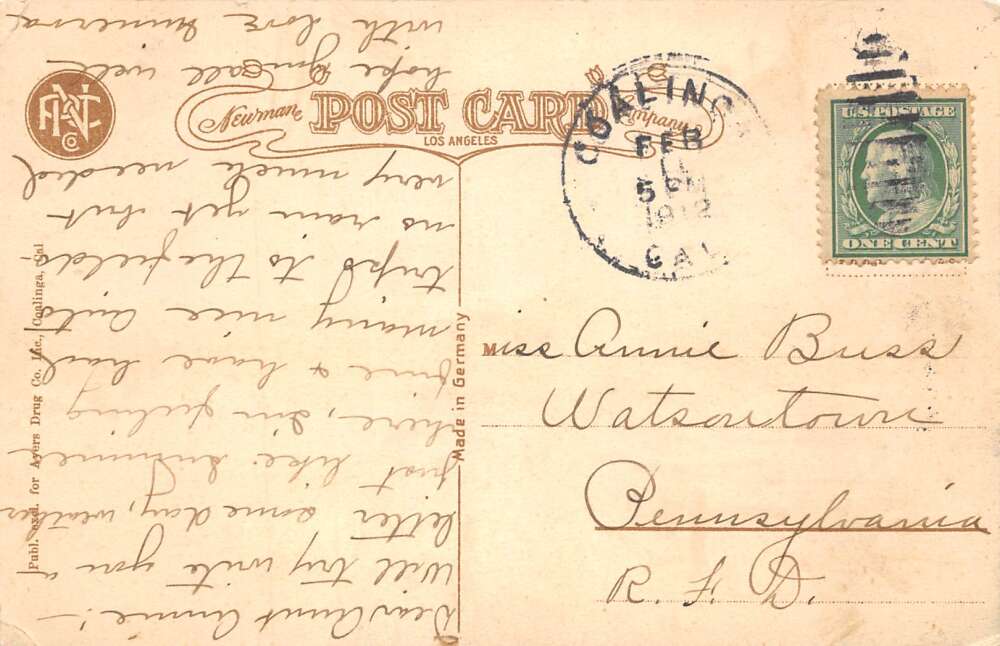 PNC Co
Newman POST CARD Company
LOS ANGELES
COALINGA
FEB
5 PM
1912
CAL
U.S. POSTAGE
ONE CENT
Made in Germany
Publ. excl. for Ayers Drug Co. Inc., Coalinga, Cal
Miss Annie Buss
Watsontown
Pennsylvania
R. F. D.
Dear Aunt Annie:-
Will try write you a
letter some day, weather
just like summer
here, am feeling
fine & have had
many nice auto
trips to the fields.
no rain yet but
very much needed
hope you all well
with love Minerva